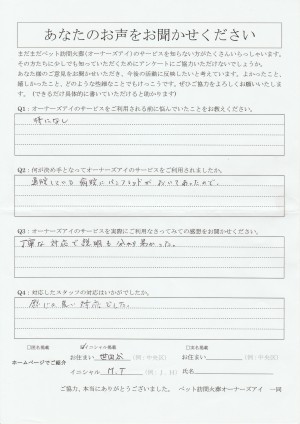 あなたのお声をお聞かせください
まだまだペット訪問火葬(オーナーズアイ)のサービスを知らない方がたくさんいらっしゃいます。
その方たちに少しでも知っていただくためにアンケートにご協力いただけないでしょうか。
あなた様のご意見をお聞かせいただき、今後の活動に反映したいと考えています。よかったこと、
嬉しかったこと、どのような些細なことでもけっこうです。ぜひご協力をよろしくお願いいたしま
す。(できるだけ具体的に書いていただけると助かります)
Q1:オーナーズアイのサービスをご利用される前に悩んでいたことをお教えください。
特になし
Q2:何が決め手となってオーナーズアイのサービスをご利用されましたか。
通院している病院にパンフレットがおいてあったので、
Q3:オーナーズアイのサービスを実際にご利用なさってみての感想をお聞かせください。
丁寧な対応で説明も分かり易かった。
Q4:対応したスタッフの対応はいかがでしたか。
感じの良い対応でした。
□匿名掲載 ☑イニシャル掲載 □実名掲載
ホームページでご紹介 お住まい 世田谷 (例:中央区) お住まい (例:中央区)
イニシャル M.T (例:J.H) 氏名
ご協力、本当にありがとうございました。 ペット訪問火葬オーナーズアイ 一同